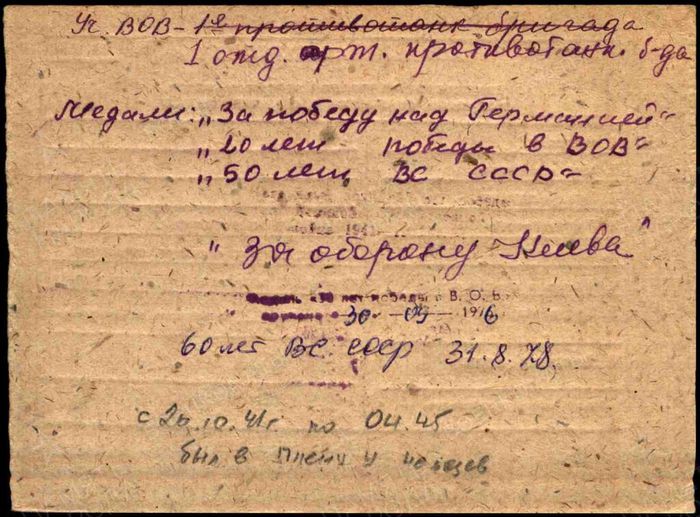 Уч. ВОВ - 1я противотанк бригада
1 отд. арт. противотанк. б-да
Медали: „За победу над Германией"
„20 лет победы в ВОВ"
„50 лет ВС СССР"
„За оборону Киева"
Медаль «30 лет победы в В. О. В.
30 - 09 - 1976
60 лет ВС. СССР 31.8.78
с 26.10.41г по 04.45
был в плену у немцев